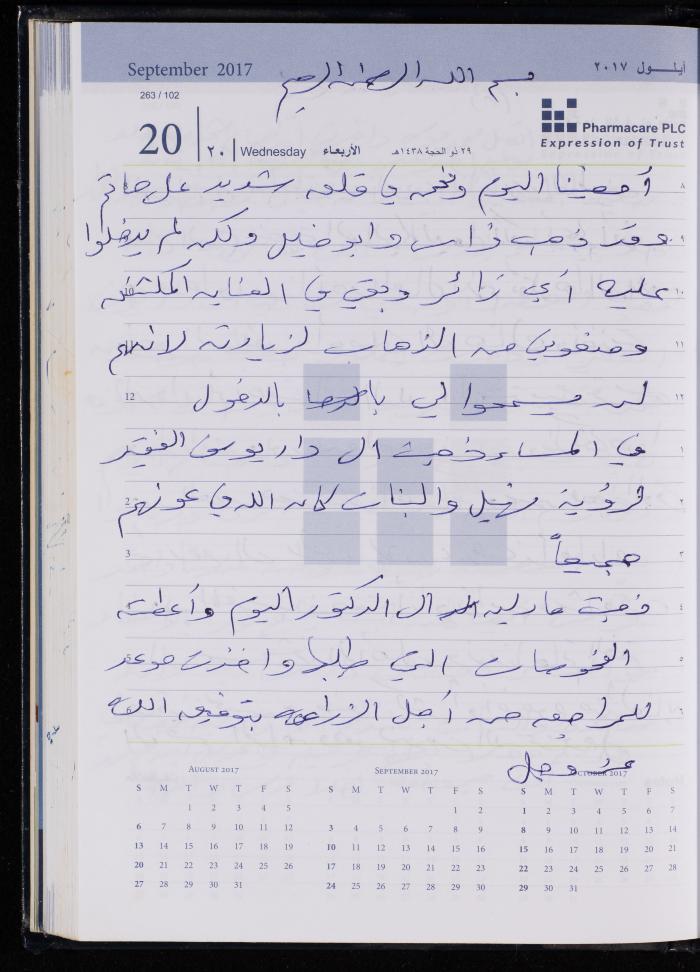 September 2017
أيلول ٢٠١٧
بسم الله الرحمن الرحيم
263 / 102
20 | ٢٠ | Wednesday الأربعاء ٢٩ ذو الحجة ١٤٣٨هـ
Pharmacare PLC
Expression of Trust
أمضينا اليوم ونحن في قلق شديد على حاتم
وقد ذهب فراس وابو خليل ولكن لم يدخلوا
عليه أي زائر وبقي في العنايه المكثفه
ومنعوني من الذهاب لزيارته لانهم
لن يسمحوا لي بالدخول
في المساء ذهبت الى دار يوسف الفقيد
لرؤية نهيل والبنات كان الله في عونهم
جميعاً
ذهبت مادلين الى الدكتور اليوم وأعطته
الفحوصات التي طلبها واخذت موعد
للمراجعه من أجل الزراعه بتوفيق الله
عز وجل
August 2017
S M T W T F S
1 2 3 4 5
6 7 8 9 10 11 12
13 14 15 16 17 18 19
20 21 22 23 24 25 26
27 28 29 30 31
September 2017
S M T W T F S
1 2
3 4 5 6 7 8 9
10 11 12 13 14 15 16
17 18 19 20 21 22 23
24 25 26 27 28 29 30
October 2017
S M T W T F S
1 2 3 4 5 6 7
8 9 10 11 12 13 14
15 16 17 18 19 20 21
22 23 24 25 26 27 28
29 30 31